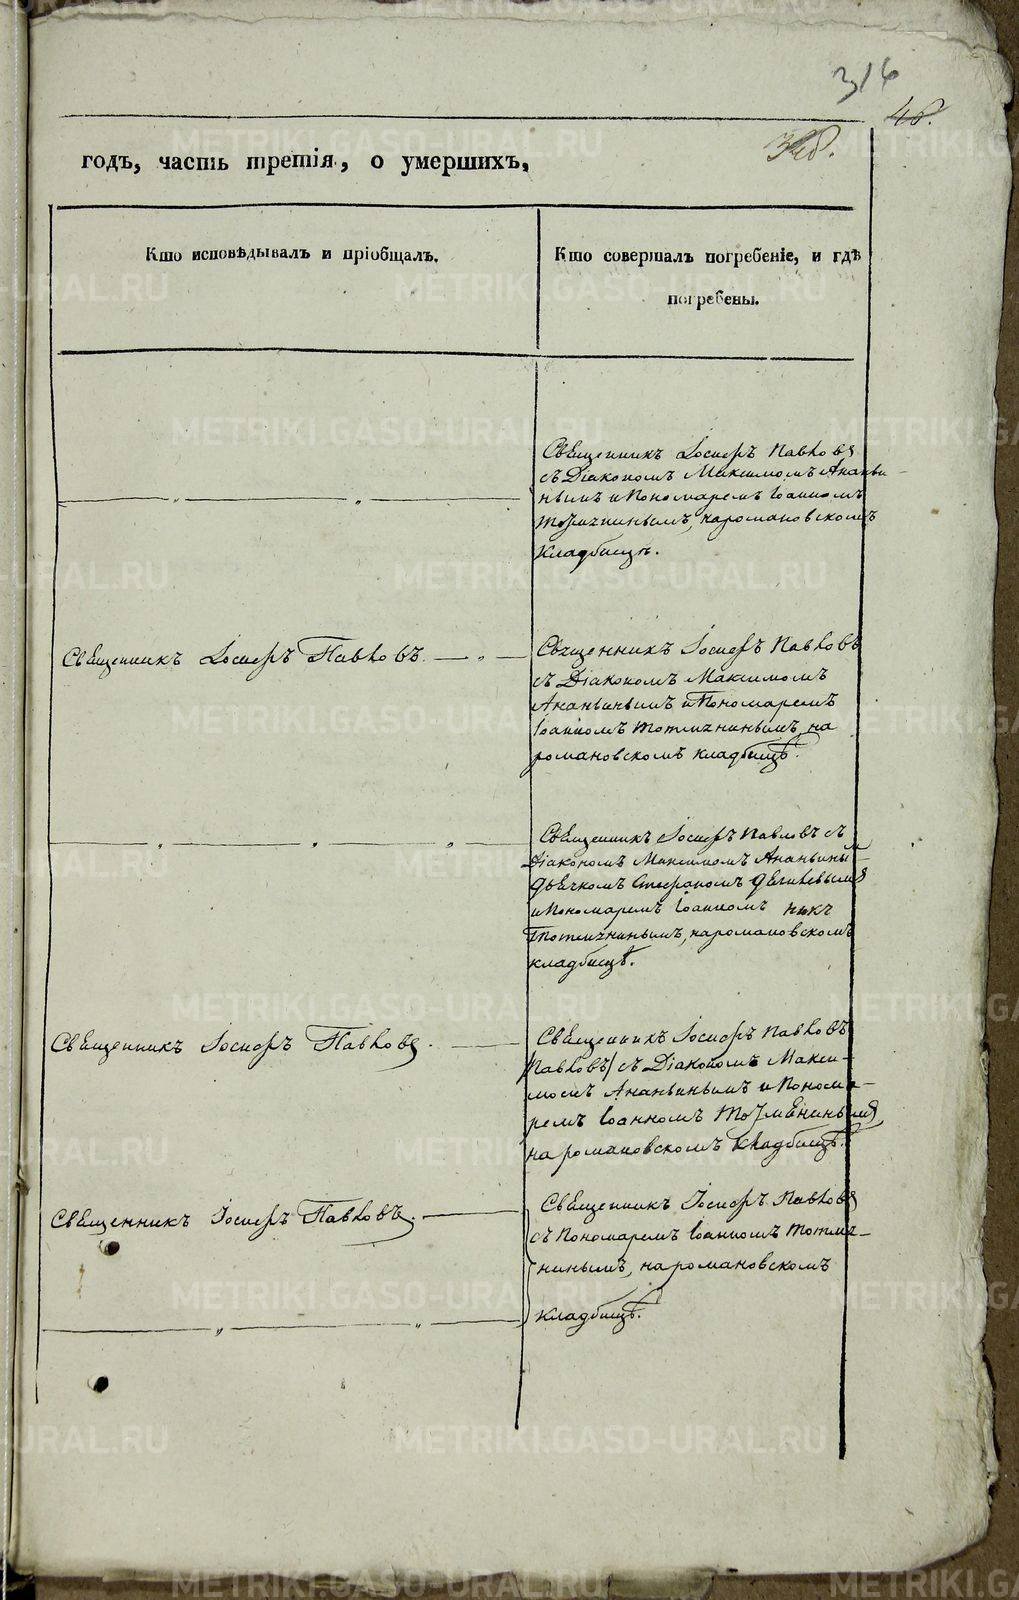 316
48.
годъ, часть третія, о умершихъ,
Кто исповѣдывалъ и пріобщалъ.
Кто совершалъ погребеніе, и гдѣ
погребены.
Священникъ Іосифъ Павловъ
съ Діакономъ Максимомъ Ананьи-
нымъ и Пономаремъ Іоанномъ
Тотмѣнинымъ, на романовскомъ
кладбищѣ.
Священникъ Іосифъ Павловъ.
Священникъ Іосифъ Павловъ
съ Діакономъ Максимомъ
Ананьинымъ и Пономаремъ
Іоанномъ Тотмѣнинымъ, на
романовскомъ кладбищѣ.
Священникъ Іосифъ Павловъ съ
Діакономъ Максимомъ Ананьинымъ
Дьячкомъ Стефаномъ
и Пономаремъ Іоанномъ
Тотмѣнинымъ, на романовскомъ
кладбищѣ.
Священникъ Іосифъ Павловъ.
Священникъ Іосифъ Павловъ
Павловъ/ съ Діакономъ Макси-
момъ Ананьинымъ и Понома-
ремъ Іоанномъ Тотмѣнинымъ,
на романовскомъ кладбищѣ.
Священникъ Іосифъ Павловъ.
Священникъ Іосифъ Павловъ
съ Пономаремъ Іоанномъ Тотмѣ-
нинымъ, на романовскомъ
кладбищѣ.
METRIKI.GASO-URAL.RU